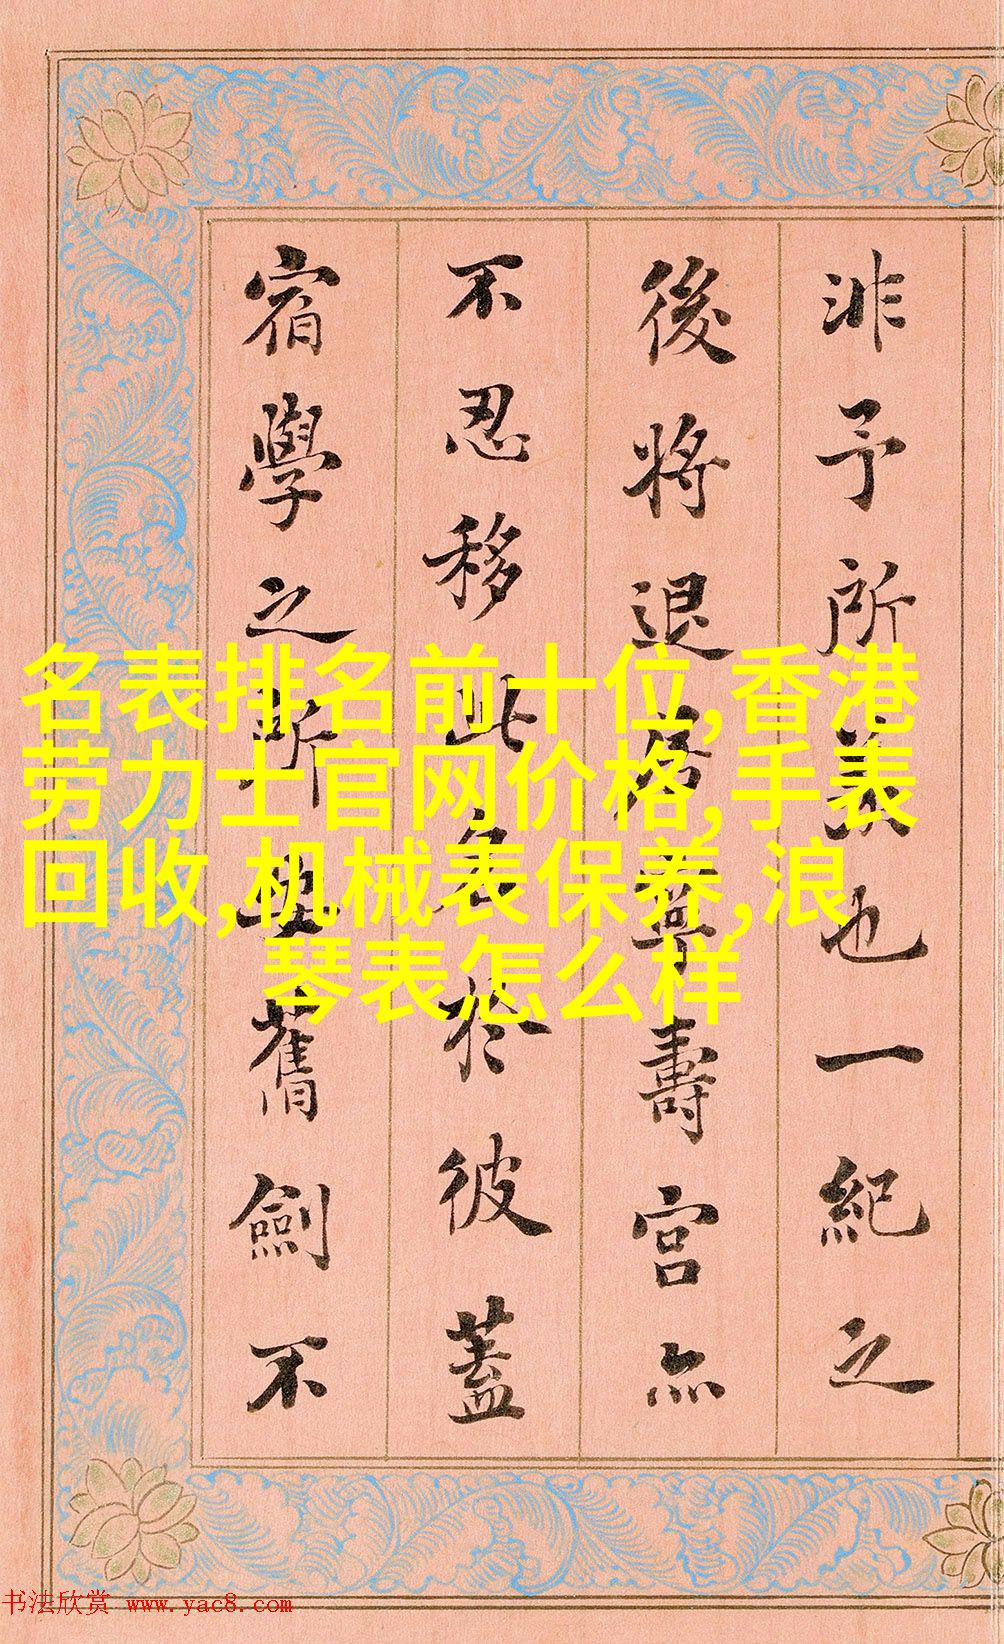 非予所羡也一纪之
後将退居寧壽宫亦
不忍移此名於彼蓋
宿學之所安舊劍不
名表排名前十位,香港
劳力士官网价格,手表
回收,机械表保养,浪
琴表怎么样
书法欣赏 www.yac8.com